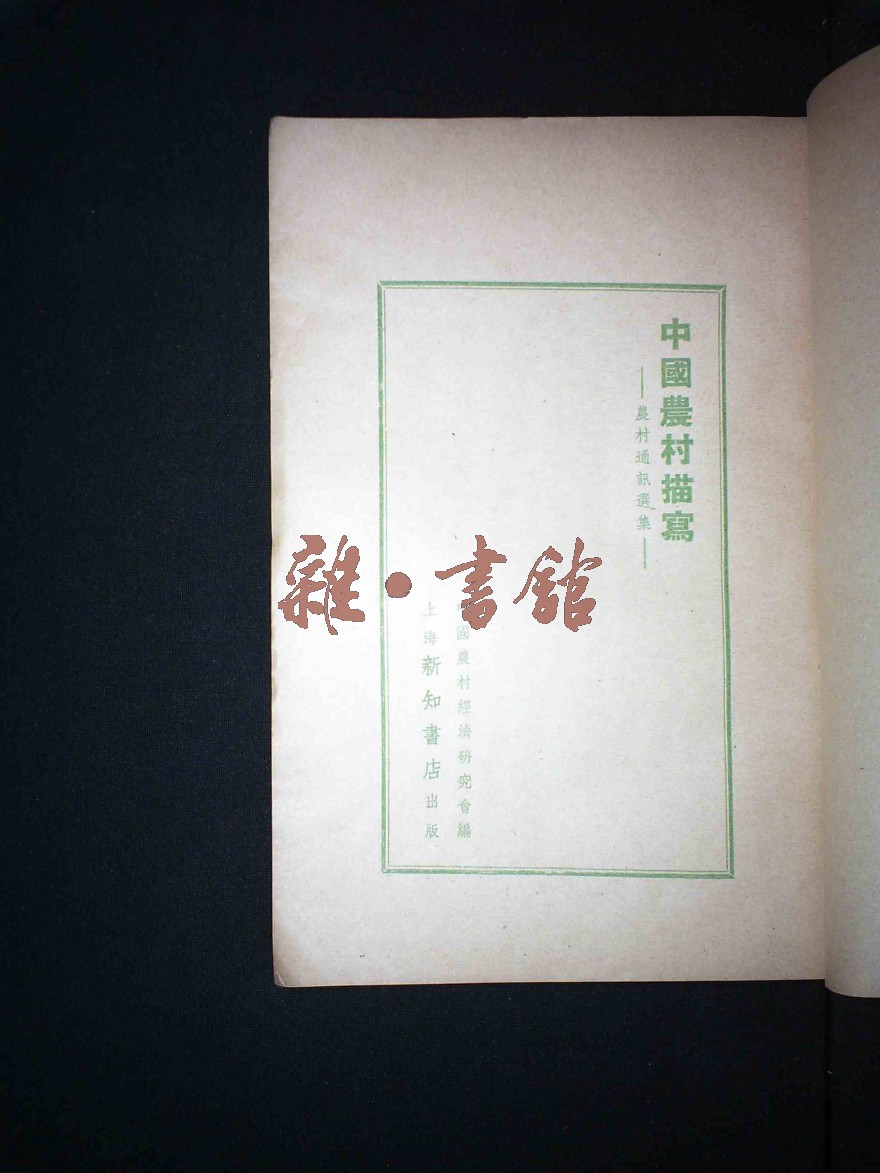 中國農村描寫
——農村通訊選集——
中國農村經濟研究會編
上海新知書店出版
雜·書館